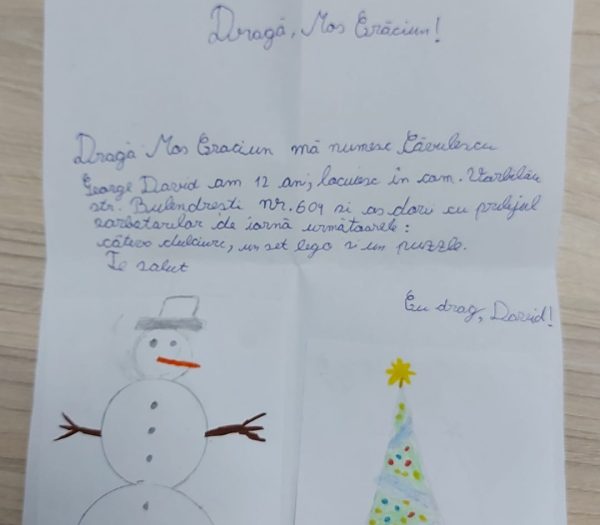 Dragă, Mos Crăciun!
Dragă Mos Craciun mă numesc Căvulescu
George David am 12 ani, locuiesc în com. Varbilău
str. Bulendresti nr. 604 si as dori cu prilejul
sarbatorilor de iarnă următoarele:
câteva dulciuri, un set lego si un puzzle.
Te salut
Cu drag, David!